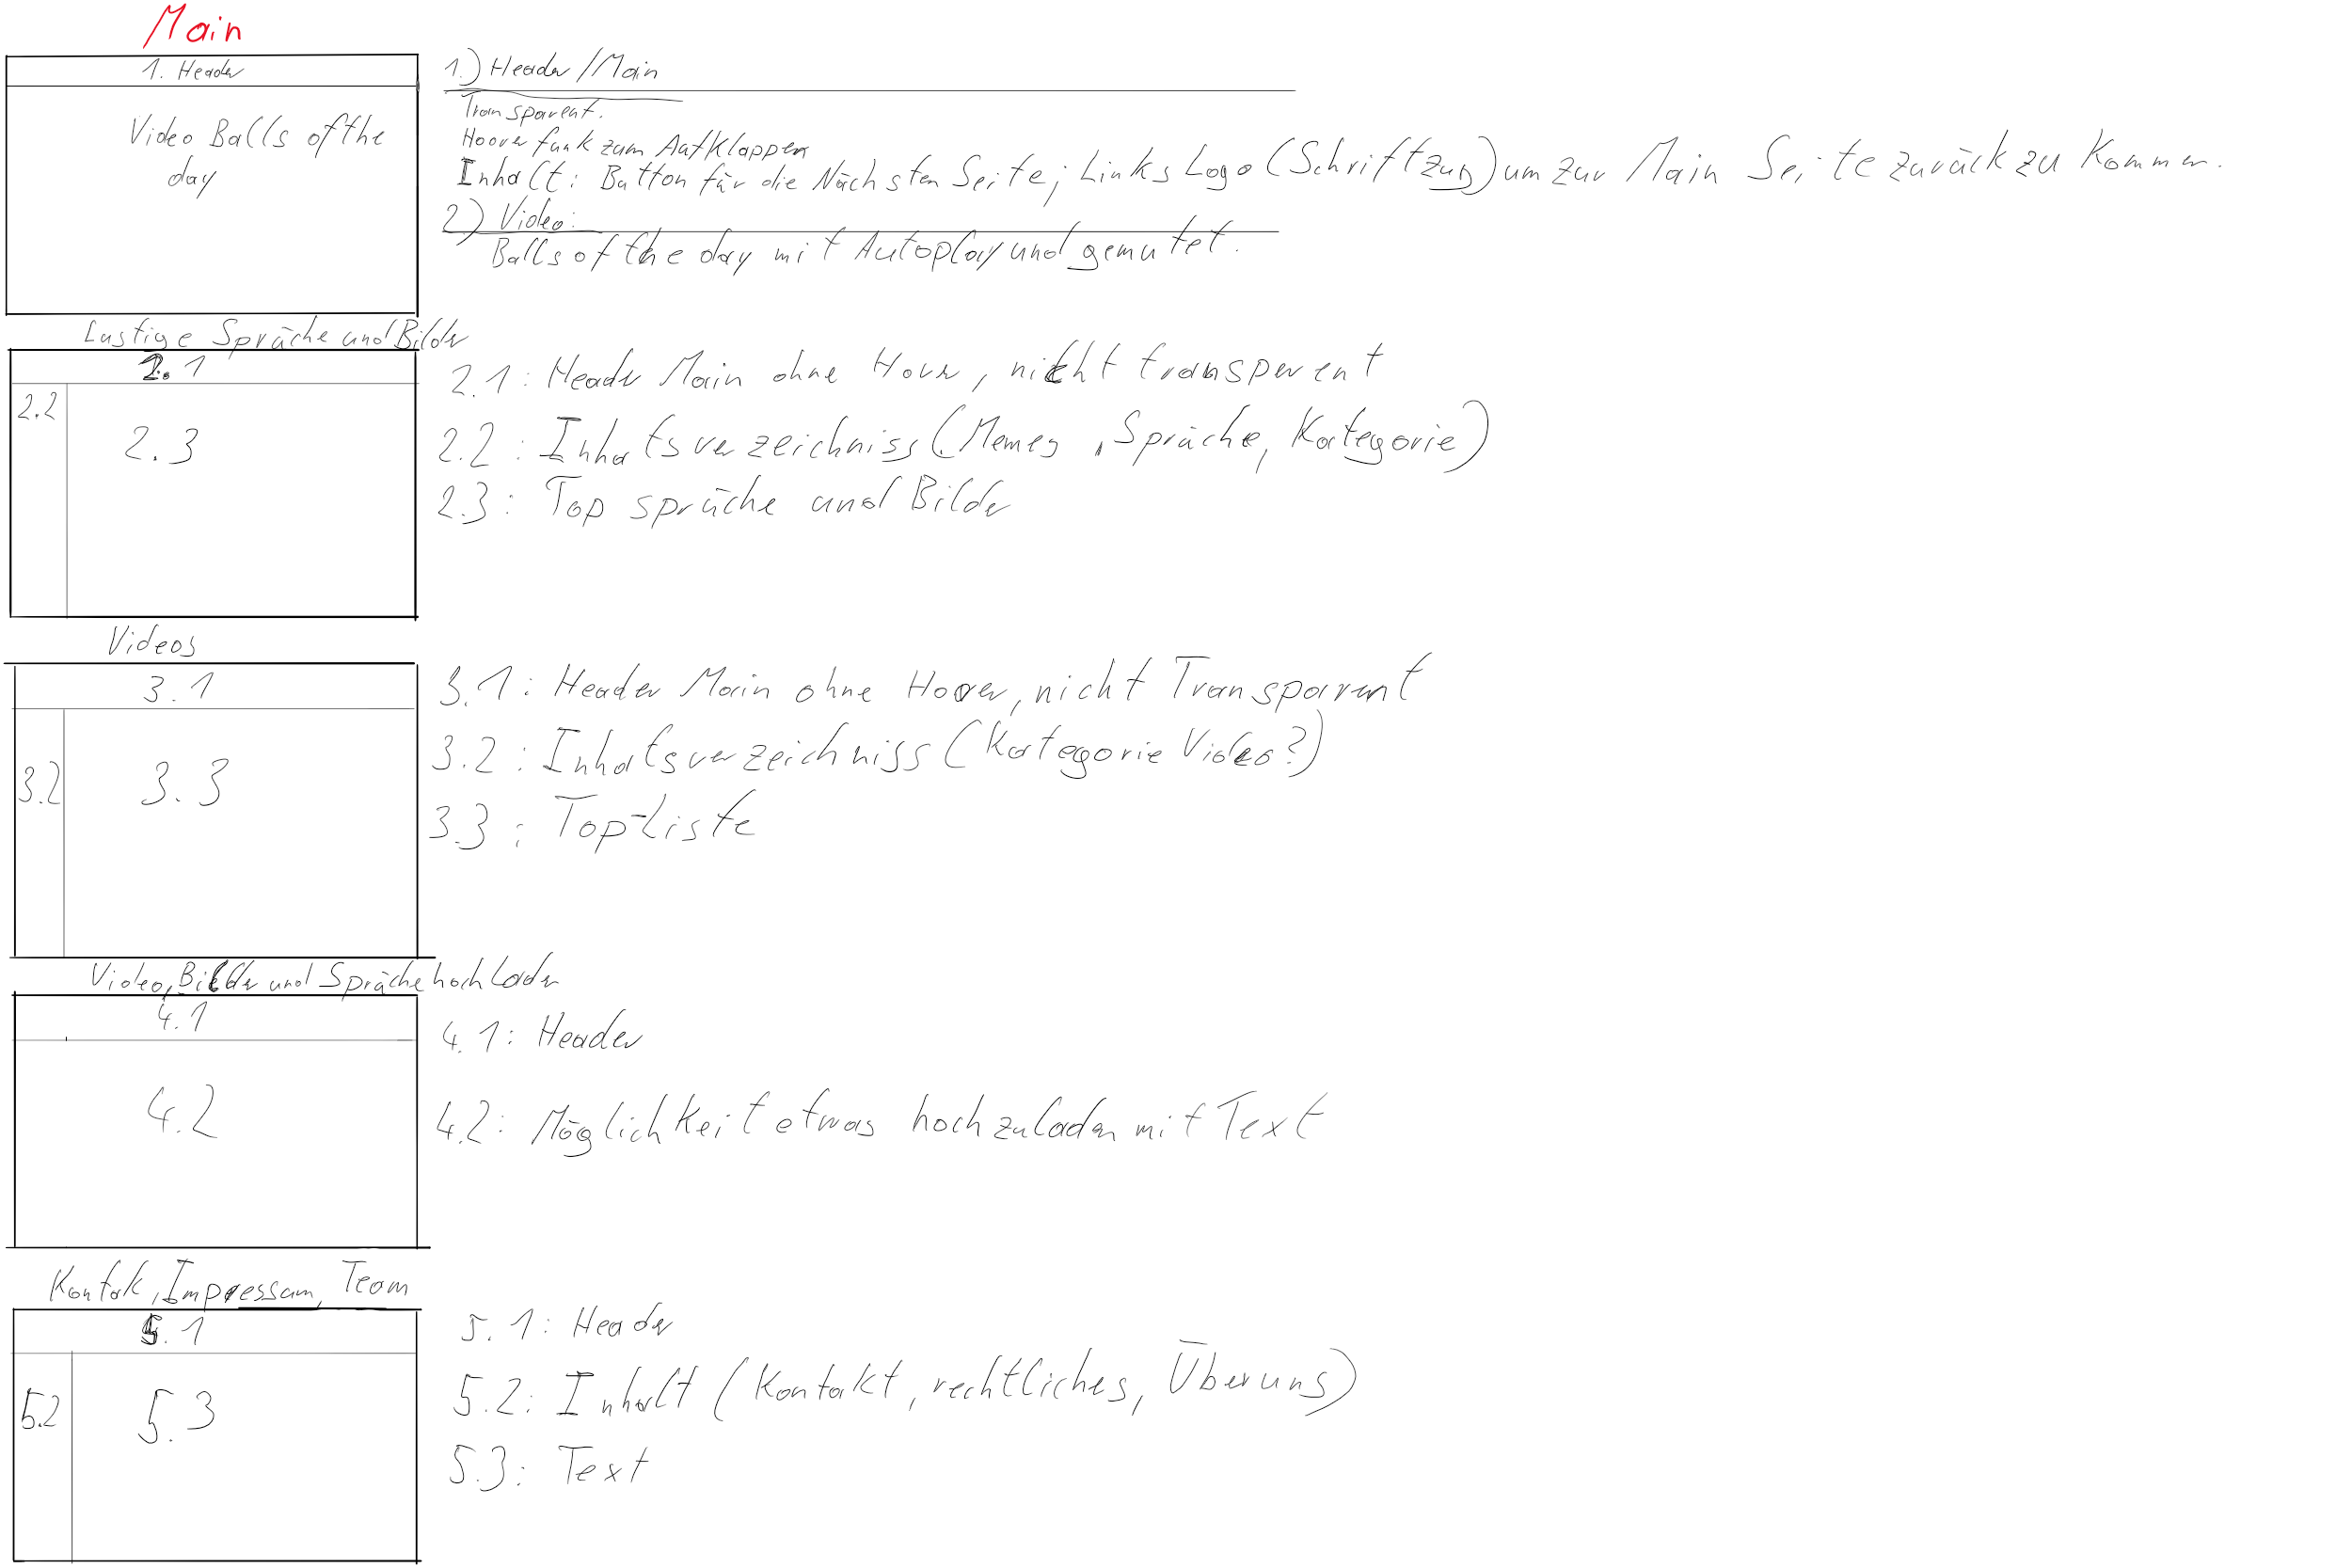 Main
1. Header
Video Balls of the
day
1.) Header/Main
Transparent.
Hoover funk zum Aufklappen
Inhalt: Button für die Nächsten Seite; Links Logo (Schriftzug) um zur Main Seite zurück zu kommen.
2.) Video:
Balls of the day mit Autoplay und gemutet.
Lustige Sprüche und Bilder
2.1
2.2
2.3
2.1: Header Main ohne Hover, nicht transperent
2.2: Inhaltsverzeichniss (Memes, Sprüche, Kategorie)
2.3: Top sprüche und Bilder
Videos
3.1
3.2
3.3
3.1: Header Main ohne Hover, nicht Transparent
3.2: Inhaltsverzeichniss (Kategorie Video?)
3.3: Top-Liste
Video, Bilder und Sprüche hochladen
4.1
4.2
4.1: Header
4.2: Möglichkeit etwas hochzuladen mit Text
Kontak, Impressum, Team
5.1
5.2
5.3
5.1: Header
5.2: Inhalt (Kontakt, rechtliches, Über uns)
5.3: Text